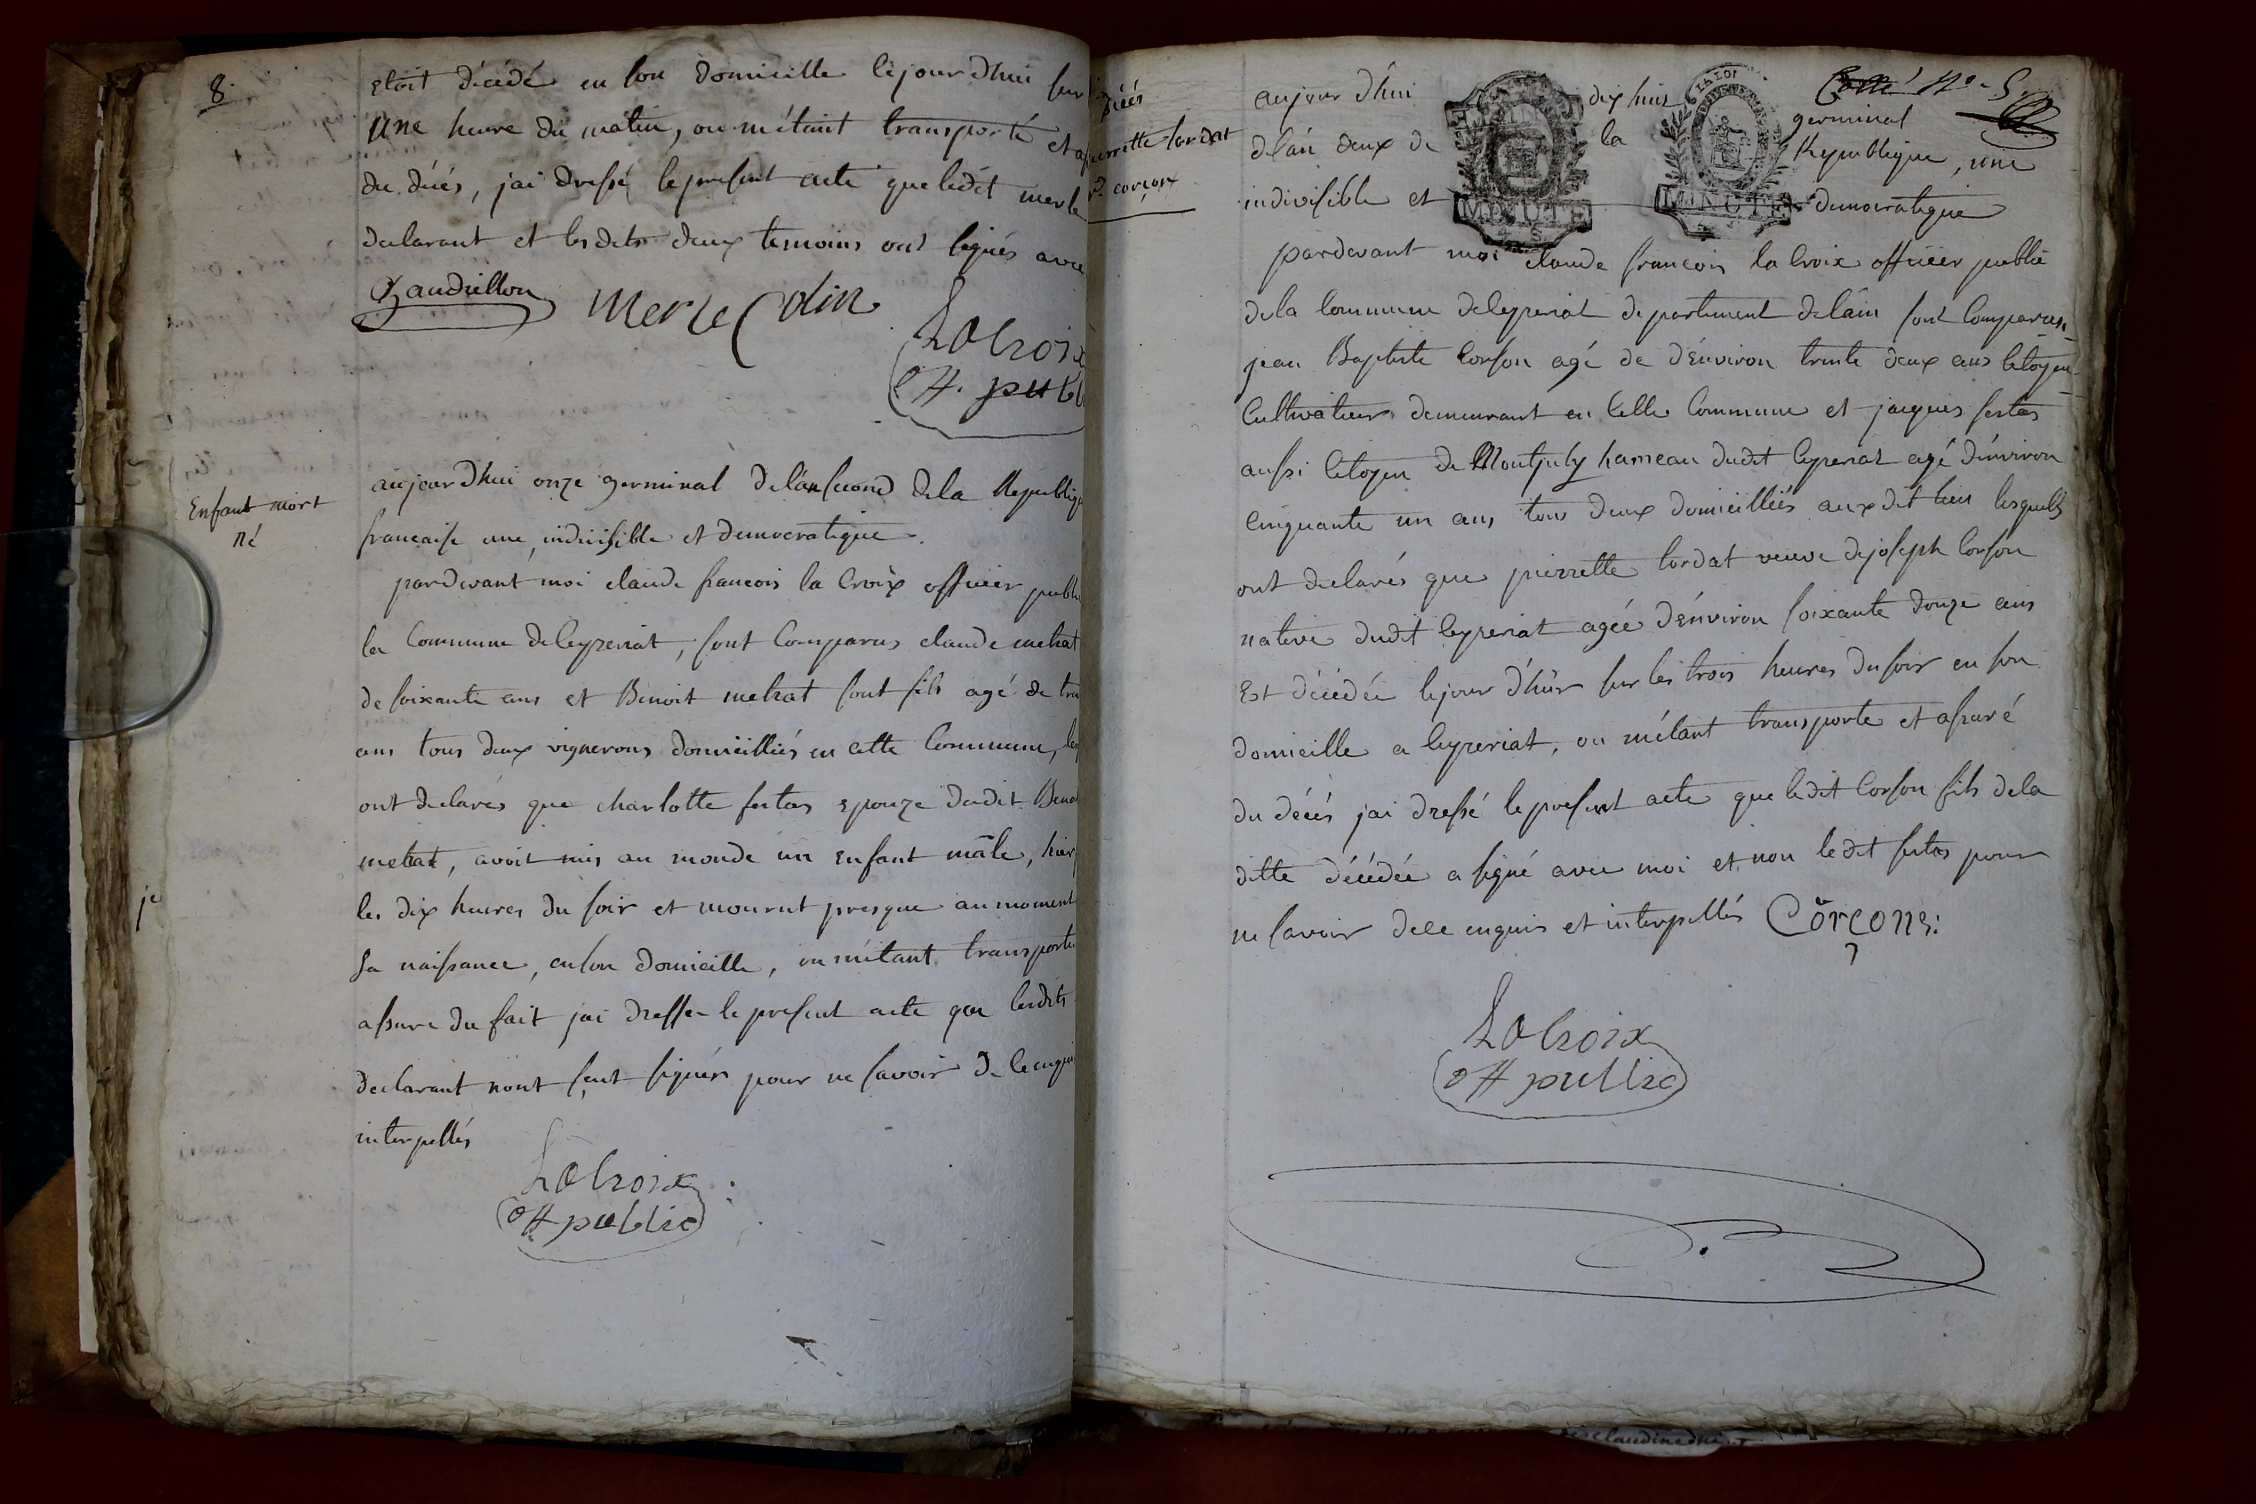 8.
etoit décédé en son domicille lejourdhui sur
une heure du matin, ou métant transporté et
du décés, jai dressé le present acte que ledit merle
declarant et lesdits deux temoins ont signés avec
Merle Colin
Lacroix
off. publ
Enfant mort
né
aujourdhui onze germinal delan second dela Republique
francaise une, indivisible et democratique.
pardevant moi claude francois la Croix officier public
la Commune deleyzeriat, sont Comparus claude
de soixante ans et Benoit son fils agé de
ans tous deux vignerons domicilliés en cette Commune,
ont declarés que charlotte fertas epouze dudit
avoit mis au monde un enfant mâle, hier
les dix heures du soir et mourut presque au moment
sa naissance, enson domicille, ou métant transporté
assuré du fait jai dresser le present acte que lesdits
declarant nont signés pour ne savoir de ce enquis
interpellés
Lacroix
off public
décés
pierrette lordat
ve corçon
Cotté No. 5.
aujourdhui dix huit germinal
delan deux de la Republique, une
indivisible et democratique
MINUTE
MINUTE
LA LOI
pardevant moi claude francois la Croix officier public
dela Commune deleyzeriat departement delain sont Comparus
jean Baptiste Corson agé de d'énviron trente deux ans Citoyen
Cultivateur demeurant en Celle Commune et jacques fertas
aussi Citoyen de Montjuly hameau dudit leyzeriat agé dénviron
Cinquante un ans tous deux domicilliés auxdit lieu lesquels
ont declarés que pierrette lordat veuve dejoseph Corson
native dudit leyzeriat agée d'énviron soixante douze ans
Est décédée lejour d'hier sur les trois heures du soir en son
domicille a leyzeriat, ou métant transporté et assuré
du décés jai dressé le present acte que ledit Corson fils dela
ditte décédée a signé avec moi et non ledit fertas pour
ne savoir dece enquis et interpellés Corçone:
Lacroix
off public